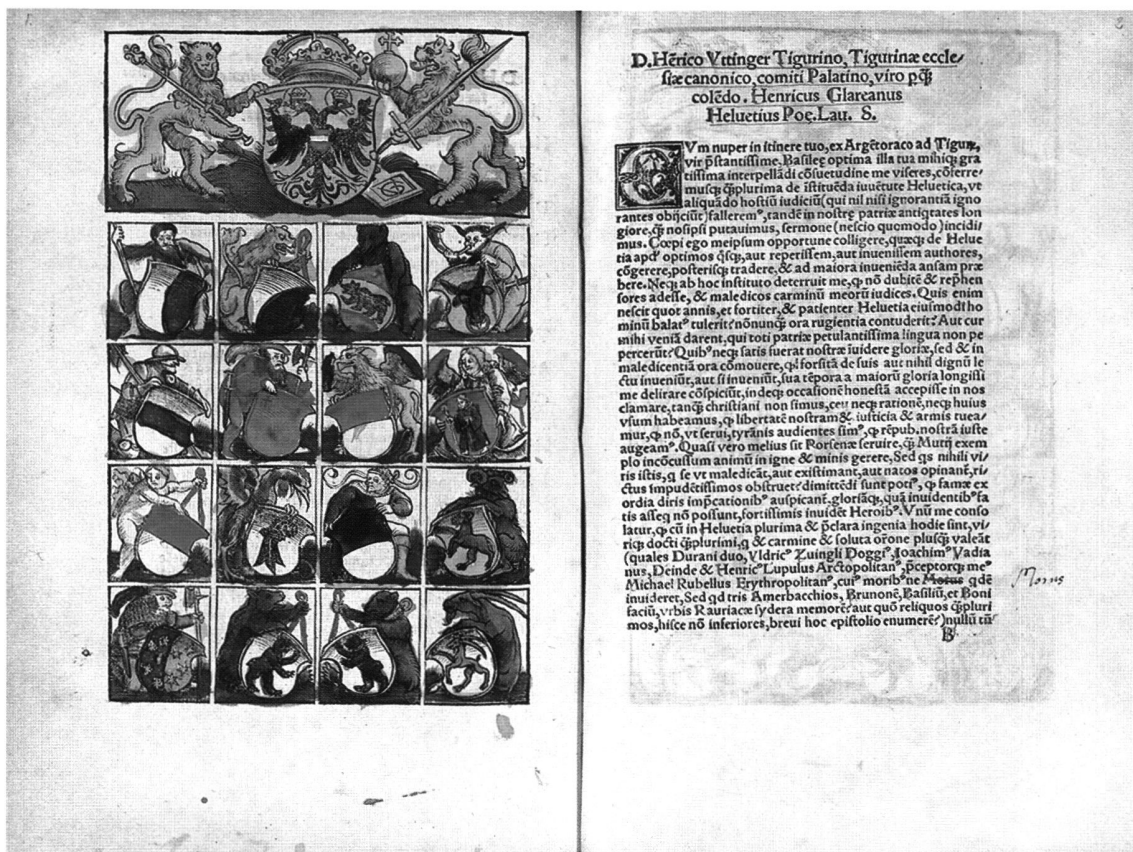 1
3
D. Hẽrico Vttinger Tigurino, Tigurinæ eccle/
siæ canonico, comiti Palatino, viro ꝑq̃ꝫ
colẽdo. Henricus Glareanus
Heluetius Poę. Lau. S.
CVm nuper in itinere tuo, ex Argẽtoraco ad Tigurꝝ,
vir p̃stantissime, Basileę optima illa tua mihiqꝫ gra
tissima interpellãdi cõsuetudine me viseres, cõferre/
musqꝫ q̃ꝫplurima de istituẽda iuuẽtute Heluetica, vt
aliquãdo hostiũ iudiciũ (qui nil nisi ignorantiã igno
rantes obijciũt) fallerem⁹, tandẽ in nostrę patriæ antiqtates lon
giore, q̃ꝫ nosipsi putauimus, sermone (nescio quomodo) incidi/
mus. Cœpi ego meipsum opportune colligere, quæqꝫ de Helue
tia apd⁹ optimos q̃sqꝫ, aut reperissem, aut inuenissem authores,
cõgerere, posterisqꝫ tradere, & ad maiora inueniẽda ansam præ
bere. Neqꝫ ab hoc instituto deterruit me, ꝙ nõ dubitẽ & rep̃hen
sores adesse, & maledicos carminũ meorũ iudices. Quis enim
nescit quot annis, et fortiter, & patienter Heluetia eiusmodi ho
minũ balat⁹ tulerit? nõnunq̃ ora rugientia contuderit? Aut cur
mihi veniã darent, qui toti patriæ petulantissima lingua non pe
percerũt? Quib⁹ neqꝫ satis fuerat nostræ ĩuidere gloriæ, sed & in
maledicentiã ora cõmouere, q̃ſ forsitã de suis aut nihil dignũ le
ctu inueniũt, aut si inueniũt, sua tẽpora a maiorũ gloria longissi
me delirare cõspiciũt, indeqꝫ occasionẽ honestã accepisse in nos
clamare, tanq̃ꝫ christiani non simus, ceu neqꝫ rationẽ, neqꝫ huius
vsum habeamus, ꝙ libertatẽ nostram & iusticia & armis tuea/
mur, ꝙ nõ, vt serui, tyrãnis audientes sim⁹, ꝙ rẽpub. nostrã iuste
augeam⁹. Quasi vero melius sit Porsenæ seruire, q̃ꝫ Mutij exem
plo incõcussum animũ in igne & minis gerere, Sed qs nihili vi/
ris istis, q se vt maledicãt, aut existimant, aut natos opinant̃, ri/
ctus impudẽtissimos obstruet? dimittẽdi sunt poti⁹, ꝙ famæ ex
ordia diris imp̃cationib⁹ auspicant̃, gloriãqꝫ, quã inuidentib⁹ fa
tis asseq̃ nõ possunt, fortissimis inuidẽt Heroib⁹. Vnũ me conso
latur, ꝙ cũ in Heluetia plurima & p̃clara ingenia hodie sint, vi/
riqꝫ docti q̃ꝫplurimi, q & carmine & soluta orõne plusq̃ꝫ valeãt
(quales Durani duo, Vldric⁹ Zuingli Doggi⁹, Joachim⁹ Vadia
nus, Deinde & Henric⁹ Lupulus Arctopolitan⁹, p̃ceptorqꝫ me⁹
Michael Rubellus Erythropolitan⁹, cui⁹ morib⁹ ne Motus qdẽ Morus
inuideret, Sed qd tris Amerbacchios, Brunonẽ, Basiliũ, et Boni
faciũ, vrbis Rauriacæ sydera memorẽ? aut quõ reliquos q̃ꝫpluri
mos, hisce nõ inferiores, breui hoc epistolio enumerẽ?) nullũ tñ
B